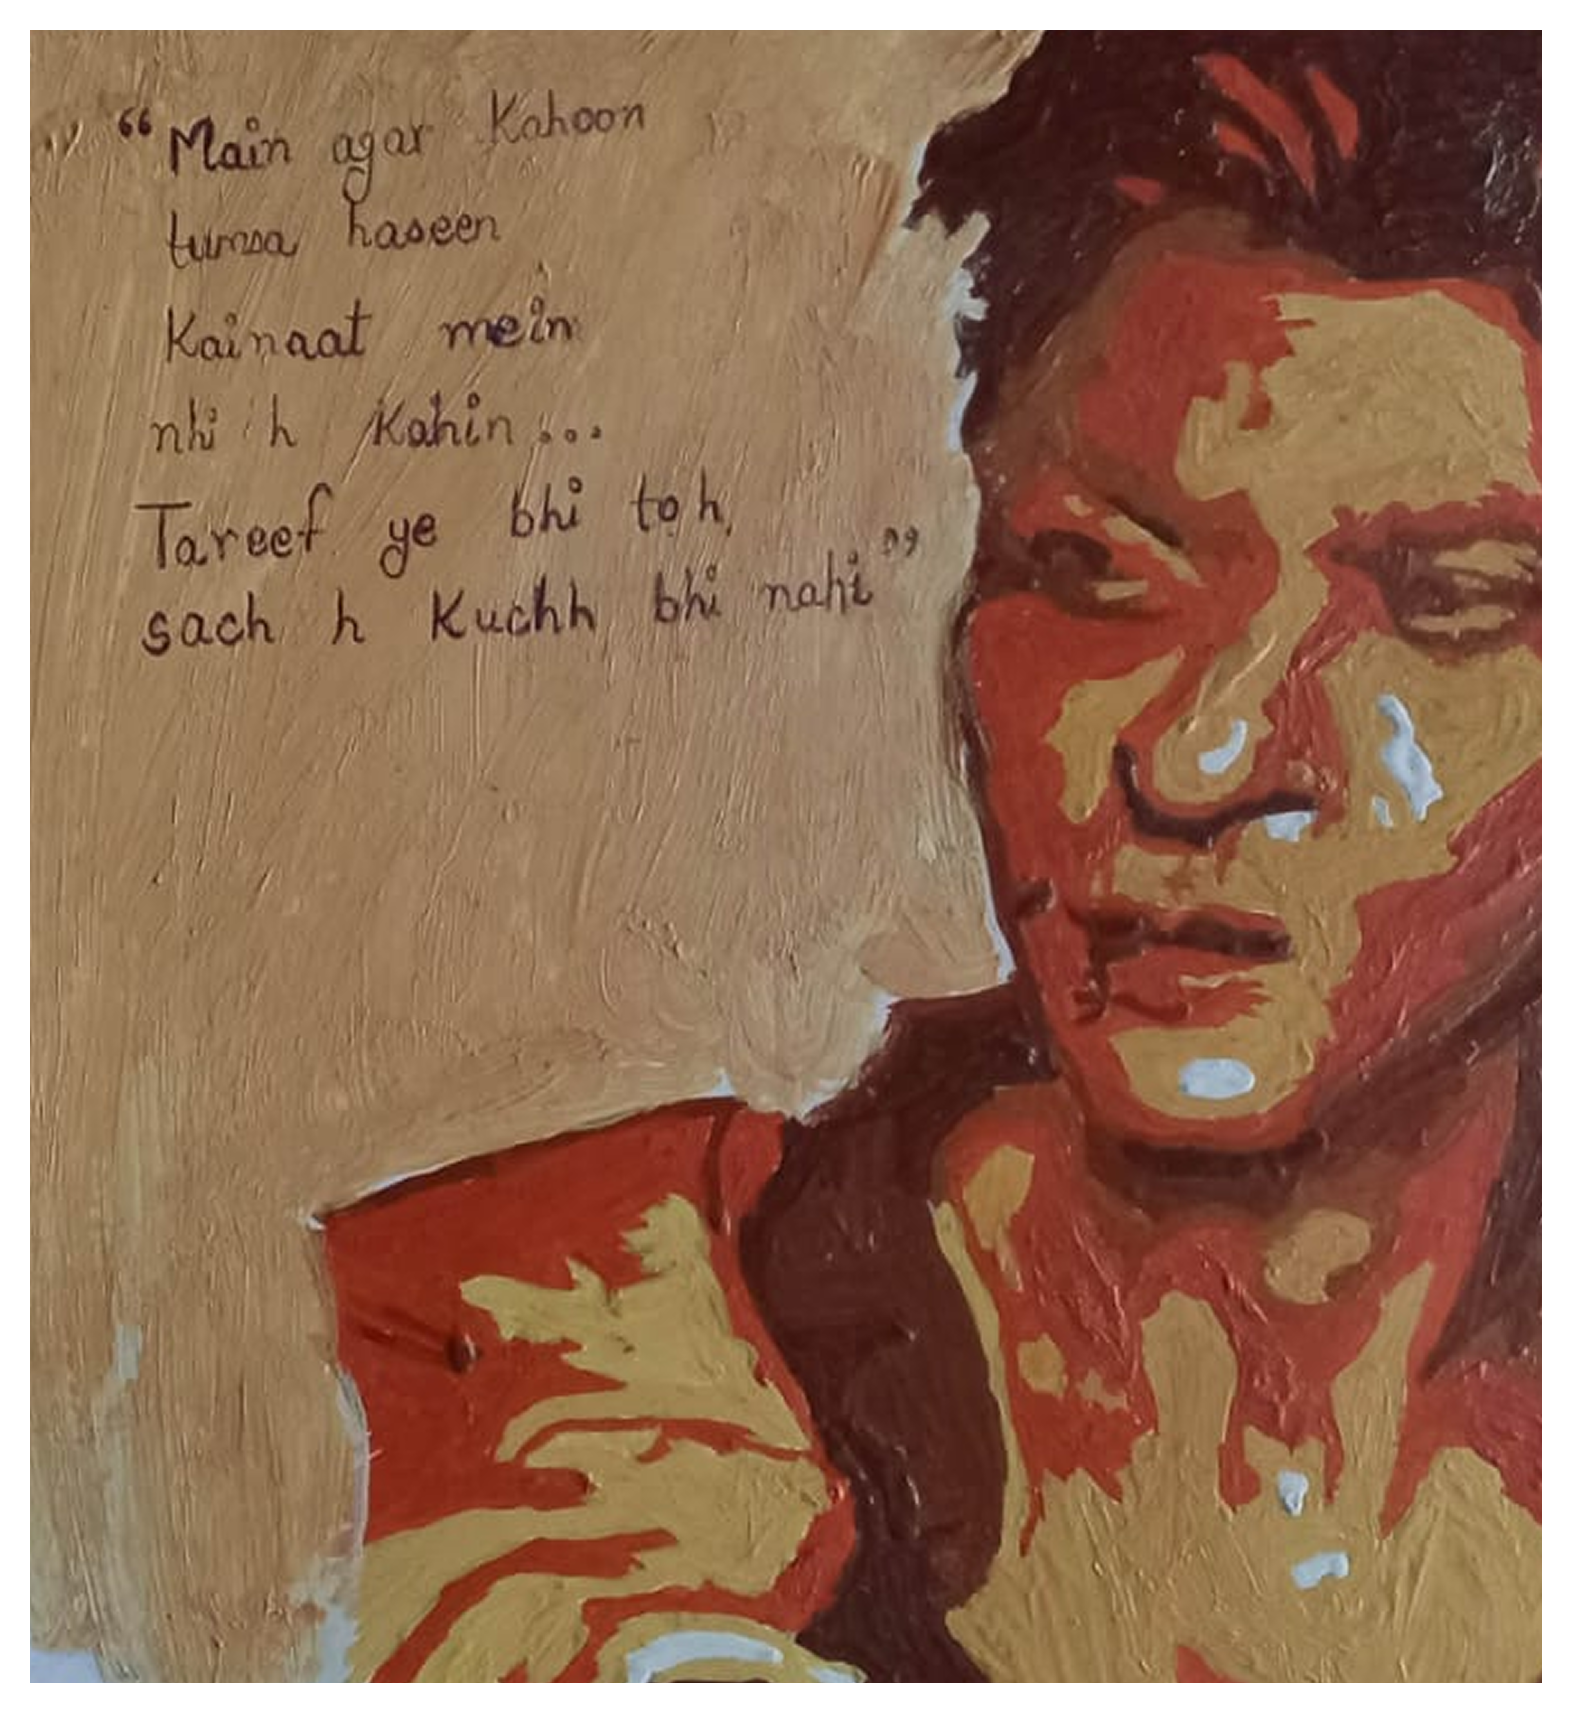 “Main agar Kahoon
tumsa haseen
Kainaat mein
nhi h Kahin...
Tareef ye bhi toh
sach h Kuchh bhi nahi”